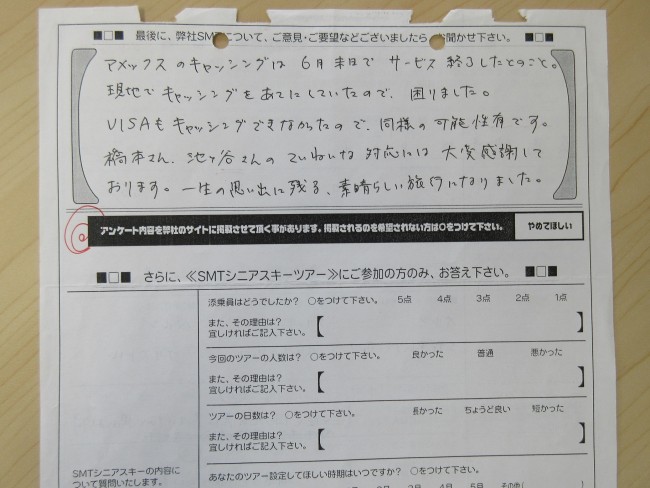 ■□■ 最後に、弊社SMTについて、ご意見・ご要望などございましたらお聞かせ下さい。 ■□■
アメックスのキャッシングは6月末日でサービス終了したとのこと。
現地でキャッシングをあてにしていたので、困りました。
VISAもキャッシングできなかったので、同様の可能性有です。
橋本さん、池ヶ谷さんのていねいな対応には大変感謝して
おります。一生の思い出に残る、素晴らしい旅行になりました。
アンケート内容を弊社のサイトに掲載させて頂く事があります。掲載されるのを希望されない方は○をつけて下さい。 やめてほしい
■□■ さらに、≪SMTシニアスキーツアー≫にご参加の方のみ、お答え下さい。 ■□■
添乗員はどうでしたか? ○をつけて下さい。 5点 4点 3点 2点 1点
また、その理由は?
宜しければご記入下さい。【 】
今回のツアーの人数は? ○をつけて下さい。 良かった 普通 悪かった
また、その理由は?
宜しければご記入下さい。【 】
ツアーの日数は? ○をつけて下さい。 長かった ちょうど良い 短かった
また、その理由は?
宜しければご記入下さい。【 】
SMTシニアスキーの内容に
ついて質問いたします。
あなたのツアー設定してほしい時期はいつですか? ○をつけて下さい。
3月 4月 5月 その他(